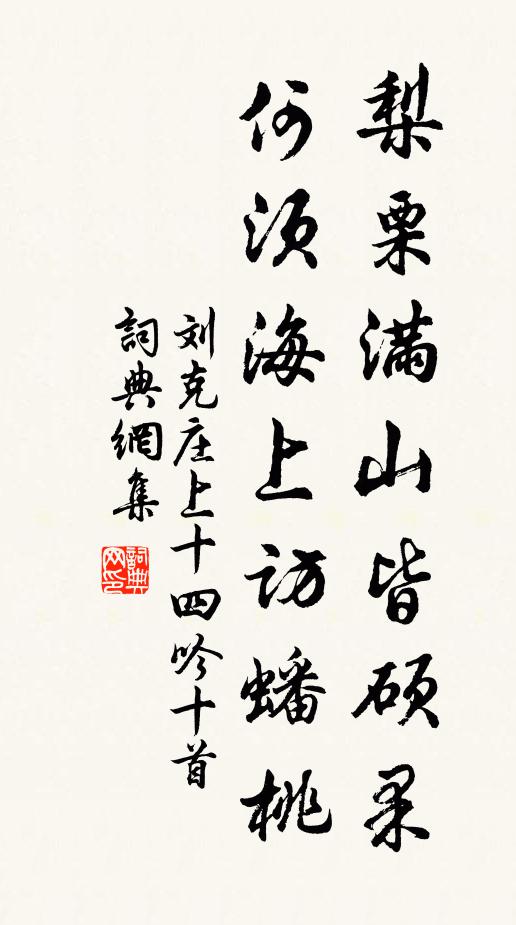 梨栗满山皆硕果
何须海上访蟠桃
刘克庄上十四吟十首
詞典網集
詞典
网印